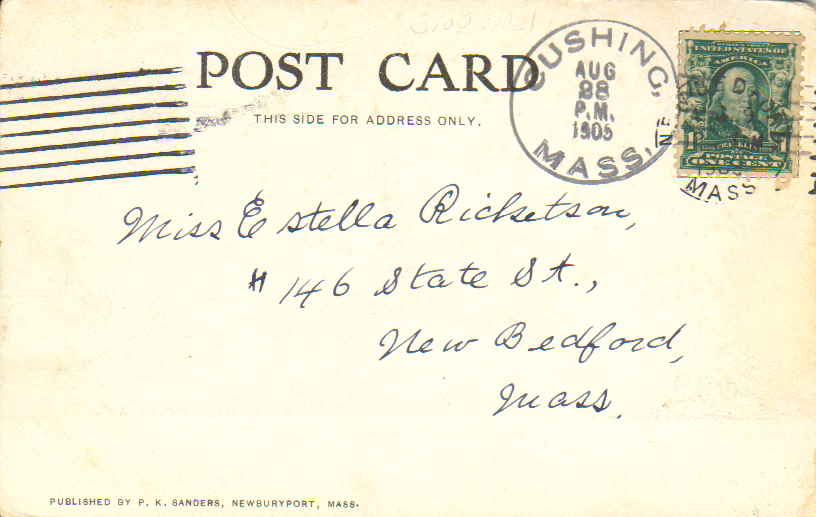 POST CARD
THIS SIDE FOR ADDRESS ONLY.
CUSHING,
AUG
28
P.M.
1905
MASS.
UNITED STATES OF
AMERICA
FRANKLIN
ONE CENT
MASS
Miss Estella Ricketson,
# 146 State St.,
New Bedford,
Mass.
PUBLISHED BY P. K. SANDERS, NEWBURYPORT, MASS.